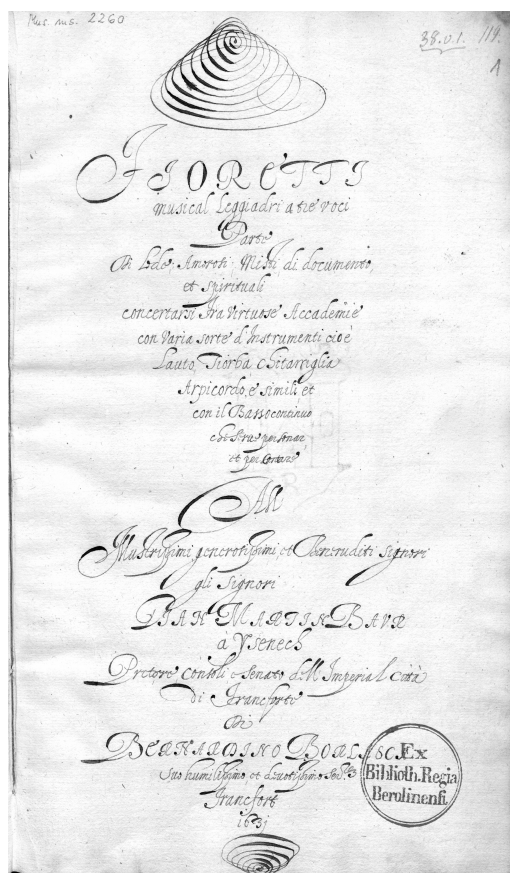 Mus. ms. 2260
119.
1
FIORETTI
musical Leggiadri a tre voci
Parte
Di Lode, Amorosi, Misti di documento,
et spirituali
concertarsi fra virtuose Accademie
con varia sorte d'Instrumenti cioè
Lauto, Tiorba, Chitarriglia
Arpicordo, è simili et
con il Bassocontinuo
che serve per sonar
et per Cantare
All
Illustrissimi, generosissimi, et Beneruditi signori
gli Signori
GIAN MARTIN BAUR
à Ysenech
Pretore, Consoli e Senato dell Imperial Città
di Francforte
Di
BERNARDINO BORLASCA
Suo humilissimo et devotissimo
Francfort
1631
Ex
Biblioth. Regia
Berolinensi.